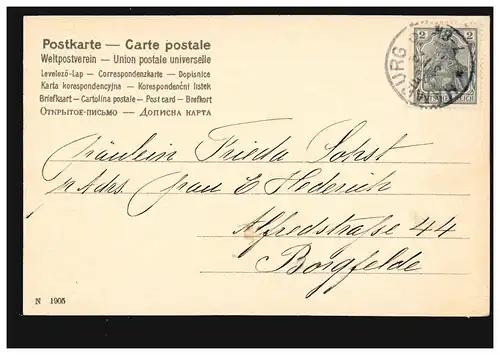 Postkarte — Carte postale
Weltpostverein — Union postale universelle
Levelező-Lap — Correspondenzkarte — Dopisnice
Karta korespondencyjna — Korespondenční lístek
Briefkaart — Cartolina postale — Post card — Brefkort
Открытое-письмо — Дописна карта
2 2
Fräulein Frieda Sohst
p. Adrs. Frau E Hederich
Alfredstraße 44
Borgfelde
N 1905